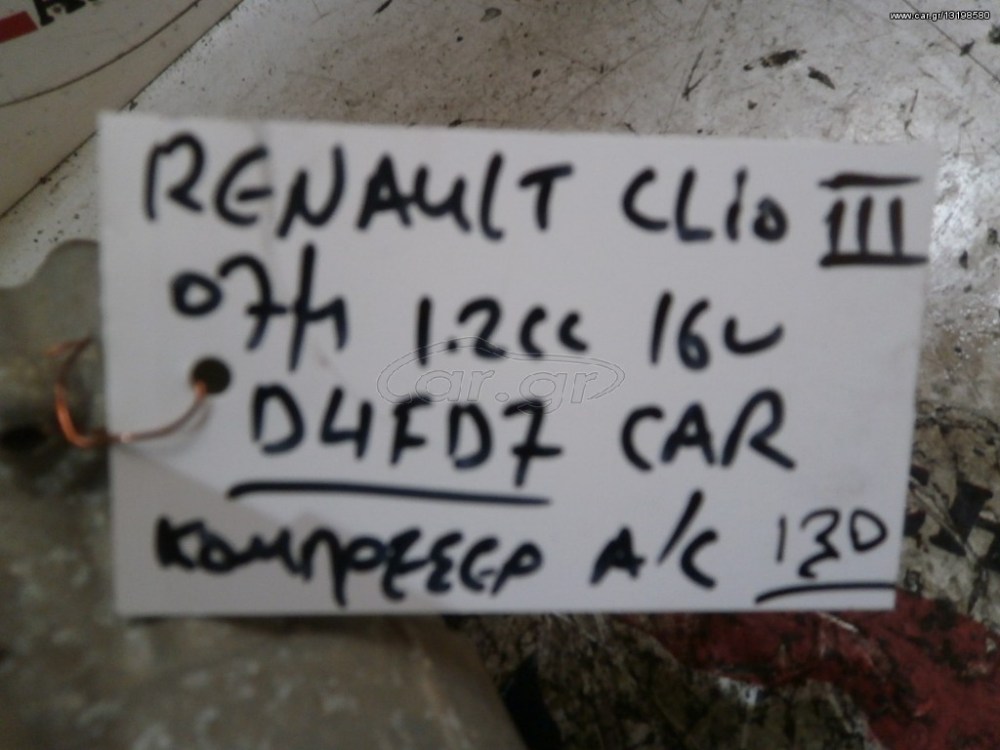 www.car.gr/13198580
RENAULT CLio III
07/1 1.2cc 16v
car.gr
D4FD7 CAR
ΚΟΜΠΡΕΣΣΕΡ A/C 130